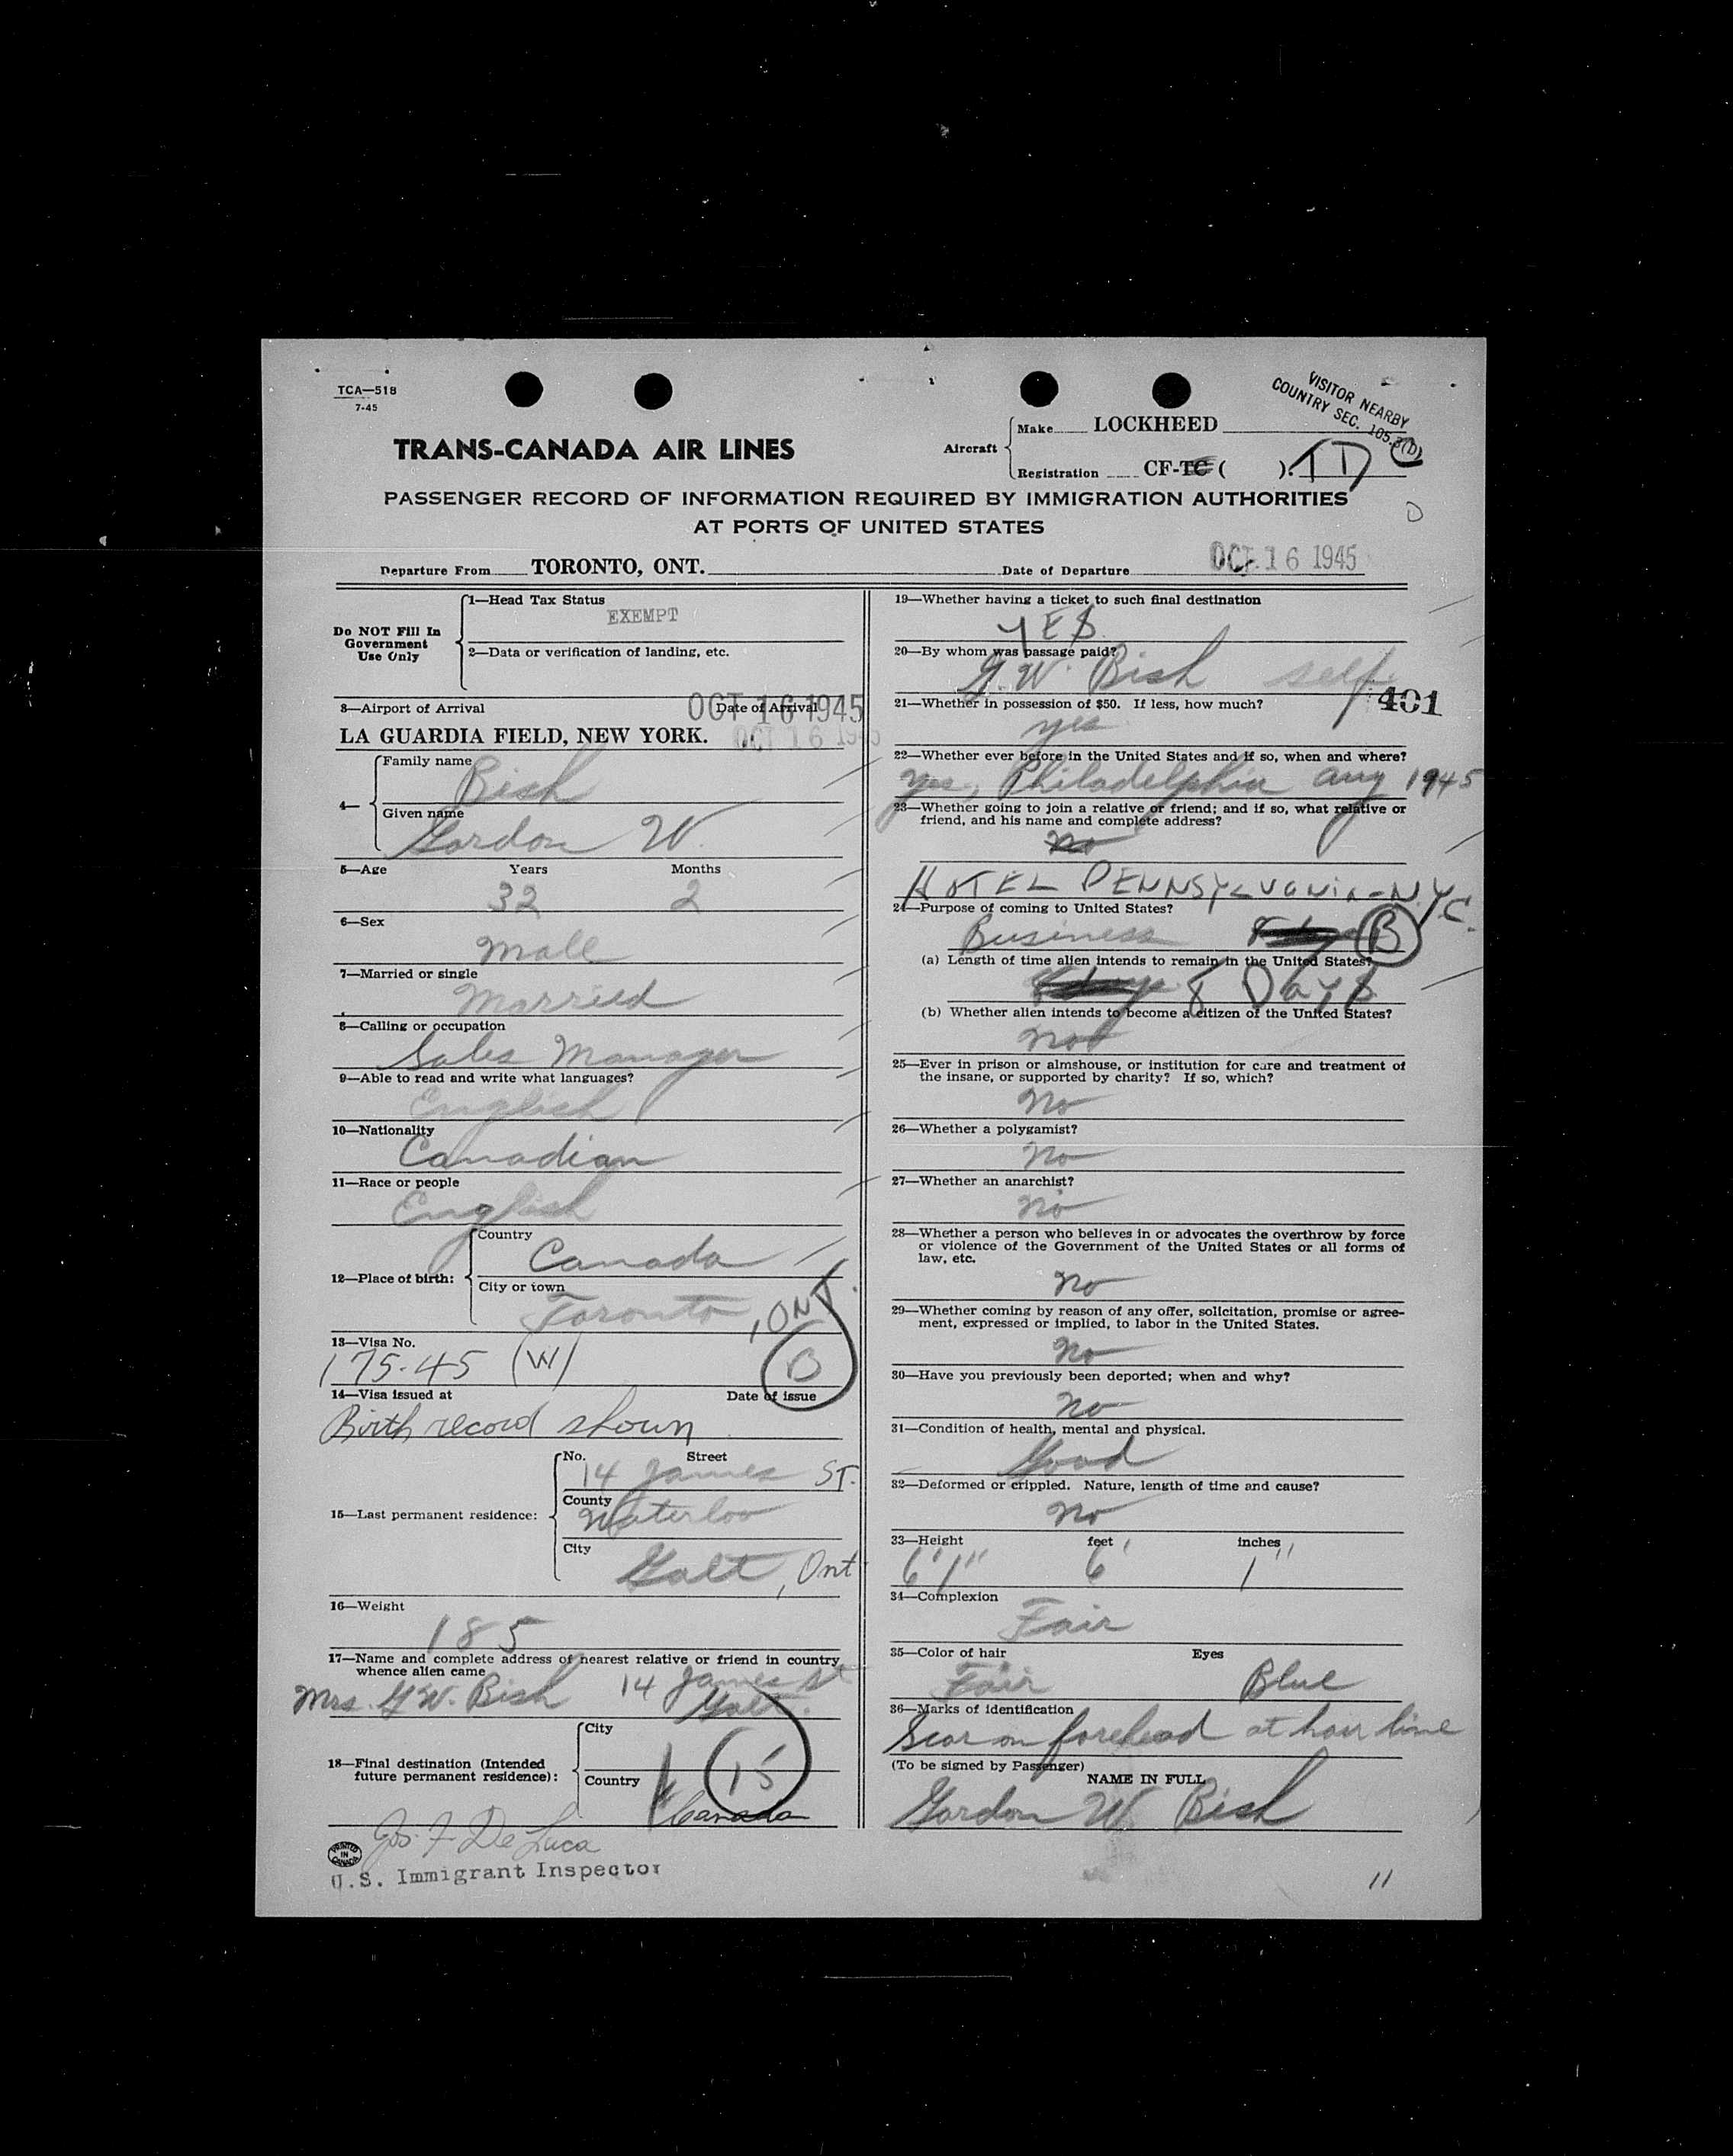 TCA—518
7-45
VISITOR NEARBY
COUNTRY SEC. 105.3(D)
TRANS-CANADA AIR LINES
Aircraft
Make LOCKHEED
Registration CF-TC ( ). TD
PASSENGER RECORD OF INFORMATION REQUIRED BY IMMIGRATION AUTHORITIES
AT PORTS OF UNITED STATES
D
Departure From TORONTO, ONT. Date of Departure OCT 16 1945
Do NOT Fill In
Government
Use Only
1—Head Tax Status
EXEMPT
2—Data or verification of landing, etc.
3—Airport of Arrival Date of Arrival OCT 16 1945
LA GUARDIA FIELD, NEW YORK. OCT 16 1945
4—
Family name
Bish
Given name
Gordon W.
5—Age Years Months
32 2
6—Sex
Male
7—Married or single
Married
8—Calling or occupation
Sales Manager
9—Able to read and write what languages?
English
10—Nationality
Canadian
11—Race or people
English
12—Place of birth:
Country
Canada
City or town
Toronto, ONT.
13—Visa No.
175-45 (W) B
14—Visa issued at Date of issue
Birth record shown
15—Last permanent residence:
No. Street
14 James ST.
County
Waterloo
City
Galt, Ont
16—Weight
185
17—Name and complete address of nearest relative or friend in country
whence alien came
Mrs. G.W. Bish 14 James St
Galt.
18—Final destination (Intended
future permanent residence):
City
Country
15
Canada
Jos. F. De Luca
PRINTED IN CANADA
U.S. Immigrant Inspector
19—Whether having a ticket to such final destination
YES
20—By whom was passage paid?
G.W. Bish self
401
21—Whether in possession of $50. If less, how much?
yes
22—Whether ever before in the United States and if so, when and where?
yes, Philadelphia Aug 1945
23—Whether going to join a relative or friend; and if so, what relative or
friend, and his name and complete address?
No
HOTEL PENNSYLVANIA-N.Y.C.
24—Purpose of coming to United States?
Business B
(a) Length of time alien intends to remain in the United States?
8 Days
(b) Whether alien intends to become a citizen of the United States?
Not
25—Ever in prison or almshouse, or institution for care and treatment of
the insane, or supported by charity? If so, which?
No
26—Whether a polygamist?
No
27—Whether an anarchist?
No
28—Whether a person who believes in or advocates the overthrow by force
or violence of the Government of the United States or all forms of
law, etc.
No
29—Whether coming by reason of any offer, solicitation, promise or agree-
ment, expressed or implied, to labor in the United States.
No
30—Have you previously been deported; when and why?
No
31—Condition of health, mental and physical.
Good
32—Deformed or crippled. Nature, length of time and cause?
No
33—Height feet inches
6'1" 6' 1"
34—Complexion
Fair
35—Color of hair Eyes
Fair Blue
36—Marks of identification
Scar on forehead at hair line
(To be signed by Passenger)
NAME IN FULL
Gordon W. Bish
11